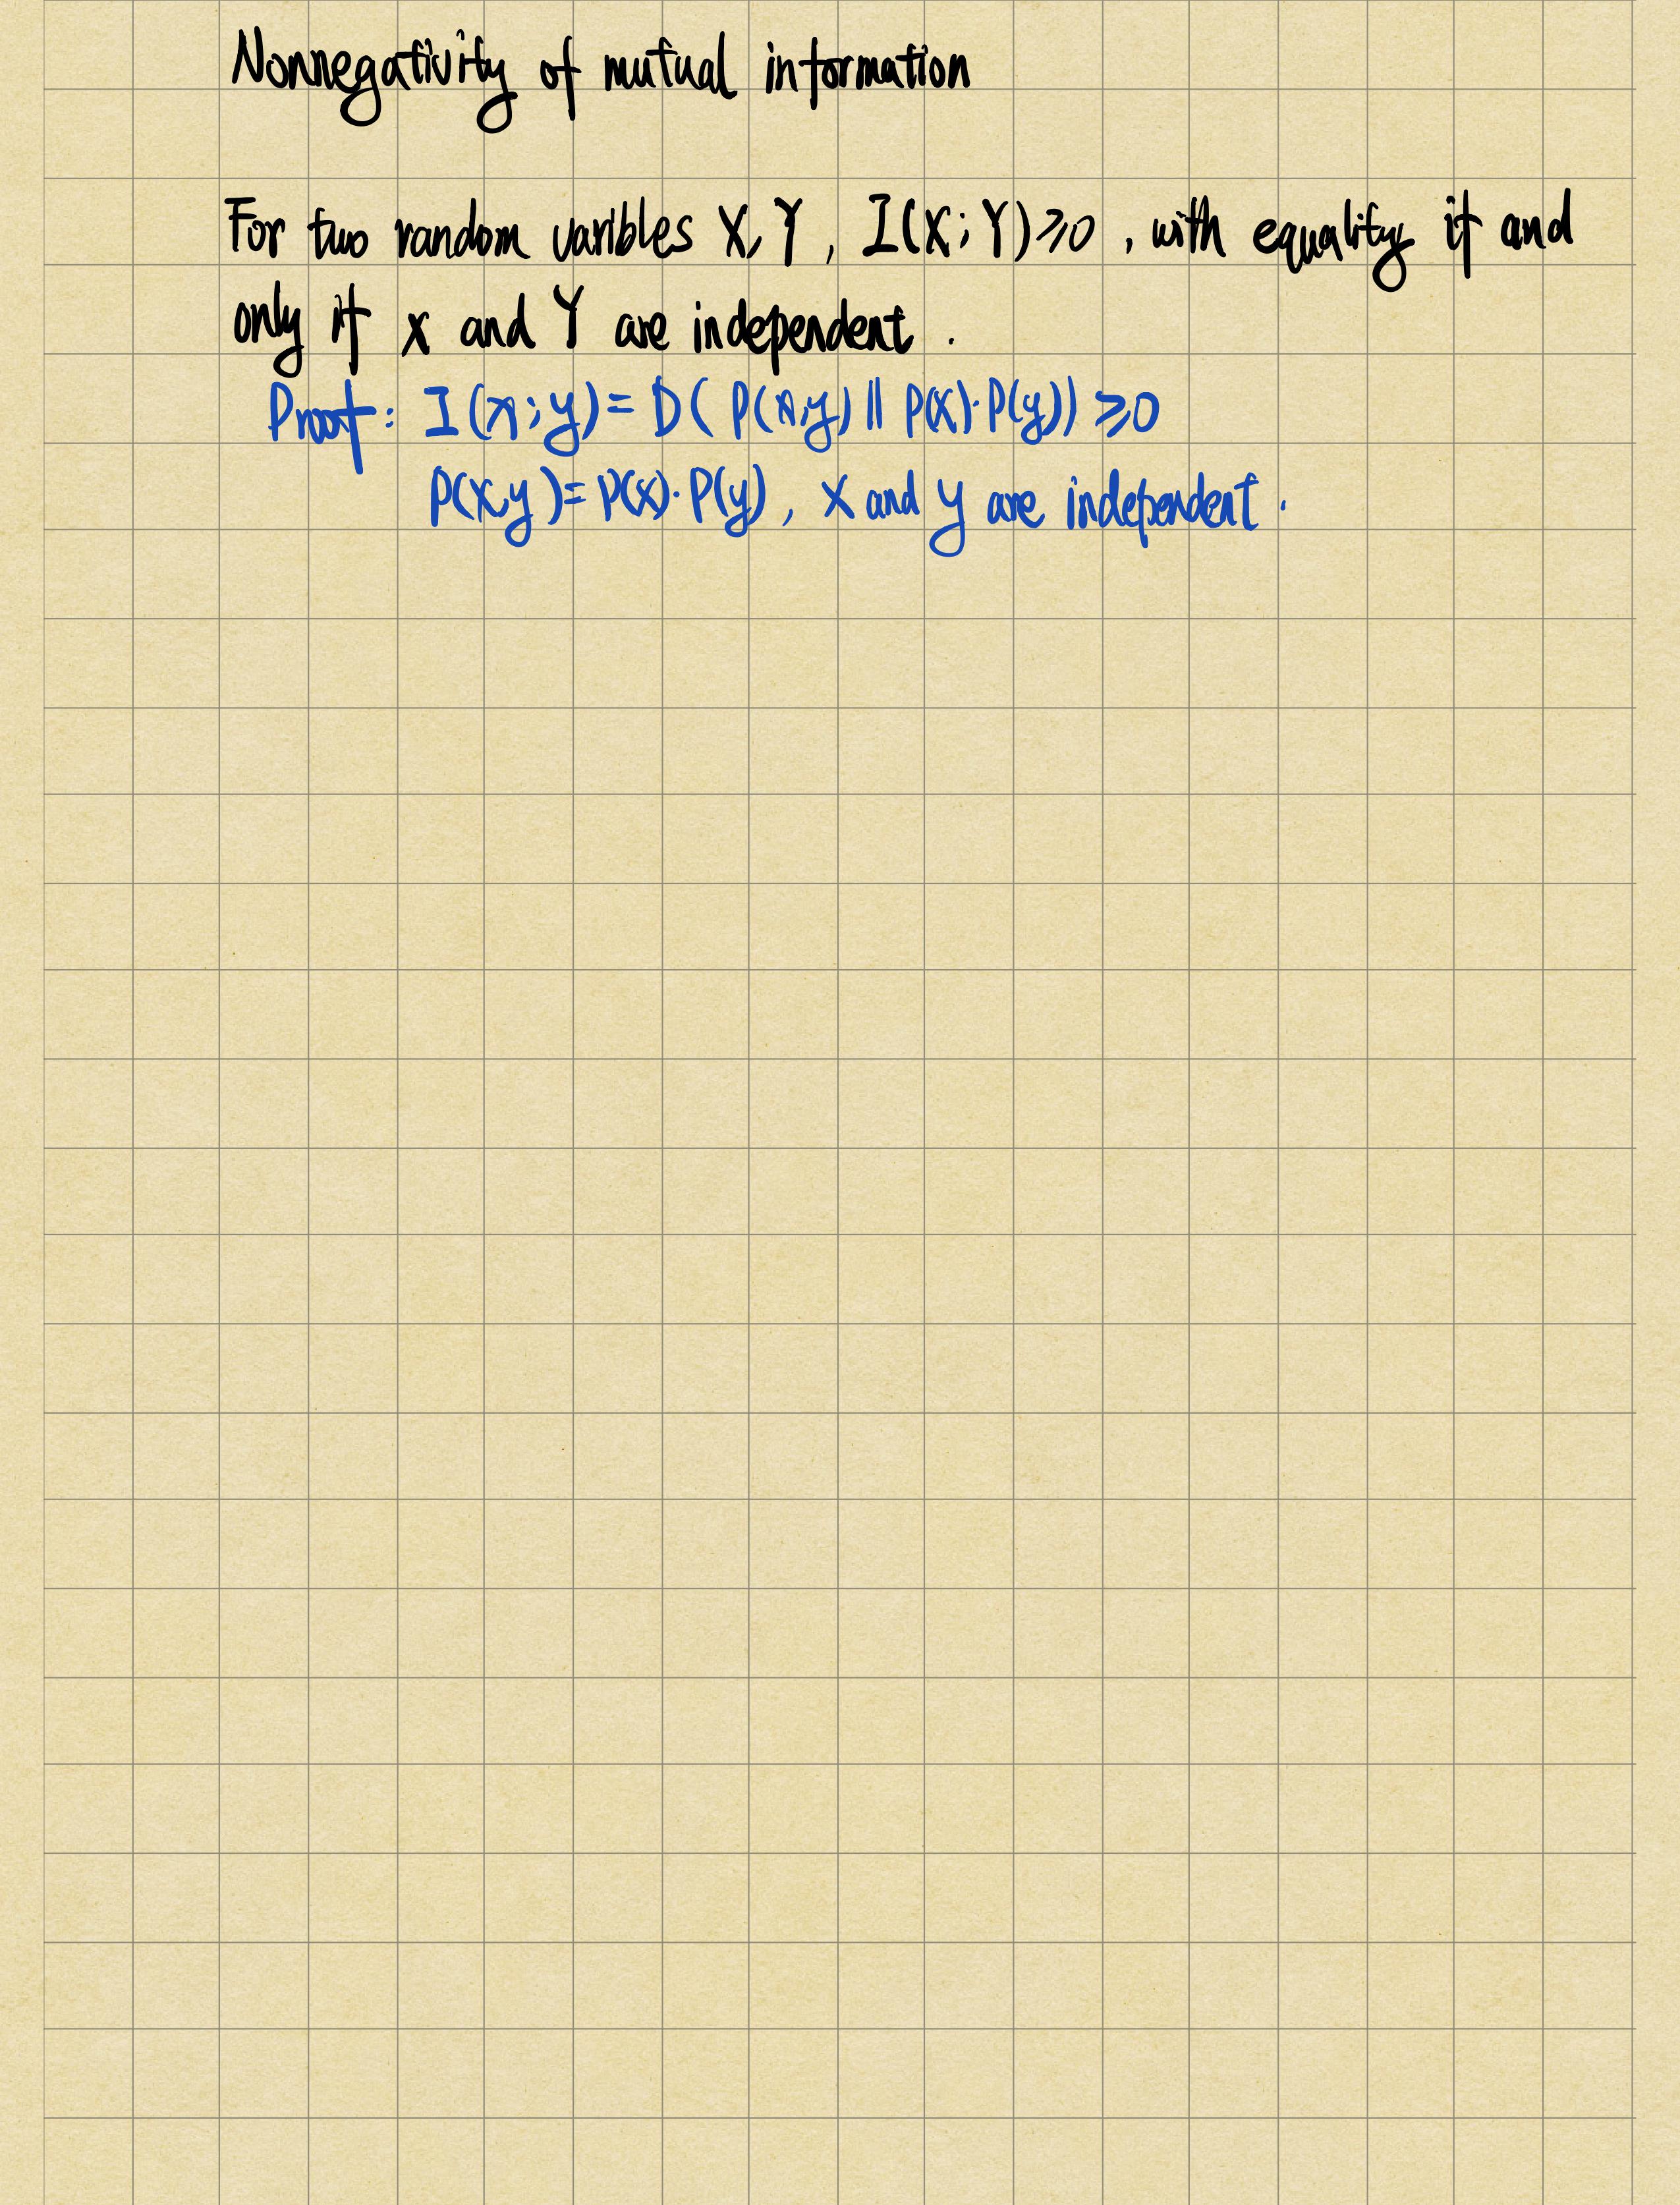 Nonnegativity of mutual information
For two random varibles X, Y, I(X;Y)≥0, with equality if and
only if x and Y are independent.
Proof: I(x;y)= D( P(x,y) || P(x)·P(y)) ≥0
P(x,y)= P(x)·P(y), x and y are independent.